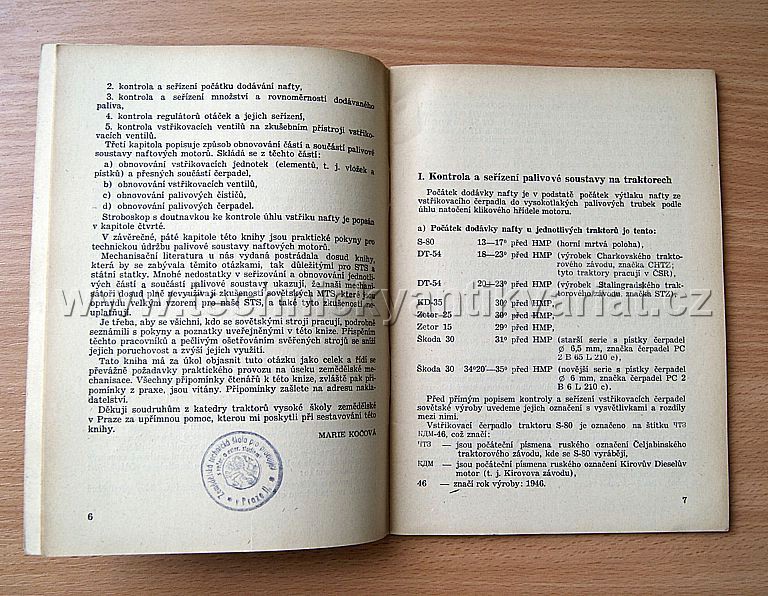 2. kontrola a seřízení počátku dodávání nafty,
3. kontrola a seřízení množství a rovnoměrnosti dodávaného
paliva,
4. kontrola regulátorů otáček a jejich seřízení,
5. kontrola vstřikovacích ventilů na zkušebním přístroji vstřiko-
vacích ventilů.
Třetí kapitola popisuje způsob obnovování částí a součástí palivové
soustavy naftových motorů. Skládá se z těchto částí:
a) obnovování vstřikovacích jednotek (elementů, t. j. vložek a
pístků) a přesných součástí čerpadel,
b) obnovování vstřikovacích ventilů,
c) obnovování palivových čističů,
d) obnovování palivových čerpadel.
Stroboskop s doutnavkou ke kontrole úhlu vstřiku nafty je popsán
v kapitole čtvrté.
V závěrečné, páté kapitole této knihy jsou praktické pokyny pro
technickou údržbu palivové soustavy naftových motorů.
Mechanisační literatura u nás vydaná postrádala dosud knihy,
která by se zabývala těmito otázkami, tak důležitými pro STS a
státní statky. Mnohé nedostatky v seřizování a obnovování jednotli-
vých částí a součástí palivové soustavy ukazují, že naši mechani-
sátoři dosud plně nevyužívají zkušeností sovětských MTS, které jsou
opravdu velkým vzorem pro naše STS, a také tyto zkušenosti ne-
uplatňují.
Je třeba, aby se všichni, kdo se sovětskými stroji pracují, podrobně
seznámili s pokyny a poznatky uveřejněnými v této knize. Přispěním
těchto pracovníků a pečlivým ošetřováním svěřených strojů se sníží
jejich poruchovost a zvýší jejich využití.
Tato kniha má za úkol objasnit tuto otázku jako celek a řídí se
převážně požadavky praktického provozu na úseku zemědělské me-
chanisace. Všechny připomínky čtenářů k této knize, zvláště pak při-
pomínky z praxe, jsou vítány. Připomínky zašlete na adresu nakla-
datelství.
Děkuji soudruhům z katedry traktorů vysoké školy zemědělské
v Praze za upřímnou pomoc, kterou mi poskytli při sestavování této
knihy.
MARIE KOČOVÁ
v Praze II.
6
I. Kontrola a seřízení palivové soustavy na traktorech
Počátek dodávky nafty je v podstatě počátek výtlaku nafty ze
vstřikovacího čerpadla do vysokotlakých palivových trubek podle
úhlu natočení klikového hřídele motoru.
a) Počátek dodávky nafty u jednotlivých traktorů je tento:
S-80 13—17° před HMP (horní mrtvá poloha),
DT-54 18—23° před HMP (výrobek Charkovského trakto-
rového závodu, značka CHTZ;
tyto traktory pracují v ČSR),
DT-54 20—23° před HMP (výrobek Stalingradského trak-
torového závodu, značka STZ),
KD-35 30° před HMP,
Zetor 25 30° před HMP,
Zetor 15 29° před HMP,
Škoda 30 31° před HMP (starší serie s pístky čerpadel
ø 6,5 mm, značka čerpadel PC
2 B 65 L 210 c),
Škoda 30 34°20'—35° před HMP (novější serie s pístky čerpadel
ø 6 mm, značka čerpadel PC 2
B 6 L 210 e).
Před přímým popisem kontroly a seřízení vstřikovacích čerpadel
sovětské výroby uvedeme jejich označení s vysvětlivkami a rozdíly
mezi nimi.
Vstřikovací čerpadlo traktoru S-80 je označeno na štítku ЧТЗ
КДМ-46, což značí:
ЧТЗ — jsou počáteční písmena ruského označení Čeljabinského
traktorového závodu, kde se S-80 vyrábějí,
КДМ — jsou počáteční písmena ruského označení Kirovův Dieselův
motor (t. j. Kirovova závodu),
46 — značí rok výroby: 1946.
7
www.technickyantikvariat.cz